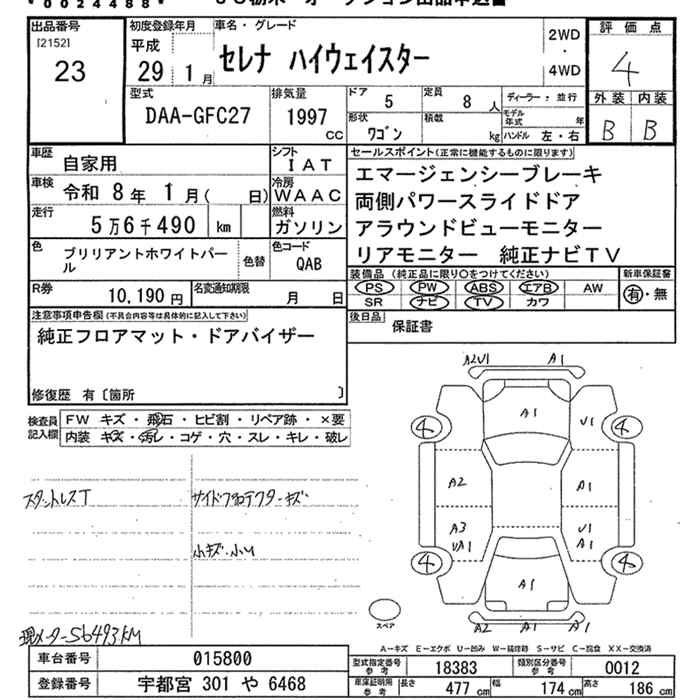 * 0024488 *
出品番号
[2152]
23
初度登録年月
平成
29 1 月
車名・グレード
セレナ ハイウェイスター
2WD
・
4WD
評価点
4
外装 内装
B B
型式
DAA-GFC27
排気量
1997
CC
ドア
5
定員
8 人
形状
ワゴン
積載
kg
ディーラー・並行
モデル年式 年
ハンドル 左・右
車歴
自家用
シフト
IAT
車検
令和 8 年 1 月( 日)
冷房
WAAC
走行
5 万 6 千 490 km
燃料
ガソリン
色
ブリリアントホワイトパール
色替
色コード
QAB
R券
10,190 円
名変通知期限
月 日
セールスポイント(正常に機能するものに限ります)
エマージェンシーブレーキ
両側パワースライドドア
アラウンドビューモニター
リアモニター 純正ナビTV
装備品 (純正品に限り○をつけてください)
新車保証書
PS PW ABS エアB AW
SR ナビ TV カワ
有・無
注意事項申告欄(不具合内容等は具体的に記入して下さい)
純正フロアマット・ドアバイザー
修復歴 有〔箇所 〕
後日品
保証書
検査員
記入欄
FW キズ・飛石・ヒビ割・リペア跡・×要
内装 キズ・汚レ・コゲ・穴・スレ・キレ・破レ
スタットレスT
サイドプロテクターキズ
小キズ.小U
現メーター56493KM
A2U1 A1
A1
U1
4 4
A2
A1
A3
UA1
U1
A1
4 4
A1
A2 A1 A1
スペア
A-キズ E-エクボ U-凹み W-補修跡 S-サビ C-腐食 XX-交換済
車台番号
015800
登録番号
宇都宮 301 や 6468
型式指定番号
参考
18383
類別区分番号
参考
0012
車庫証明用
参考
長さ
477 cm
幅
174 cm
高さ
186 cm